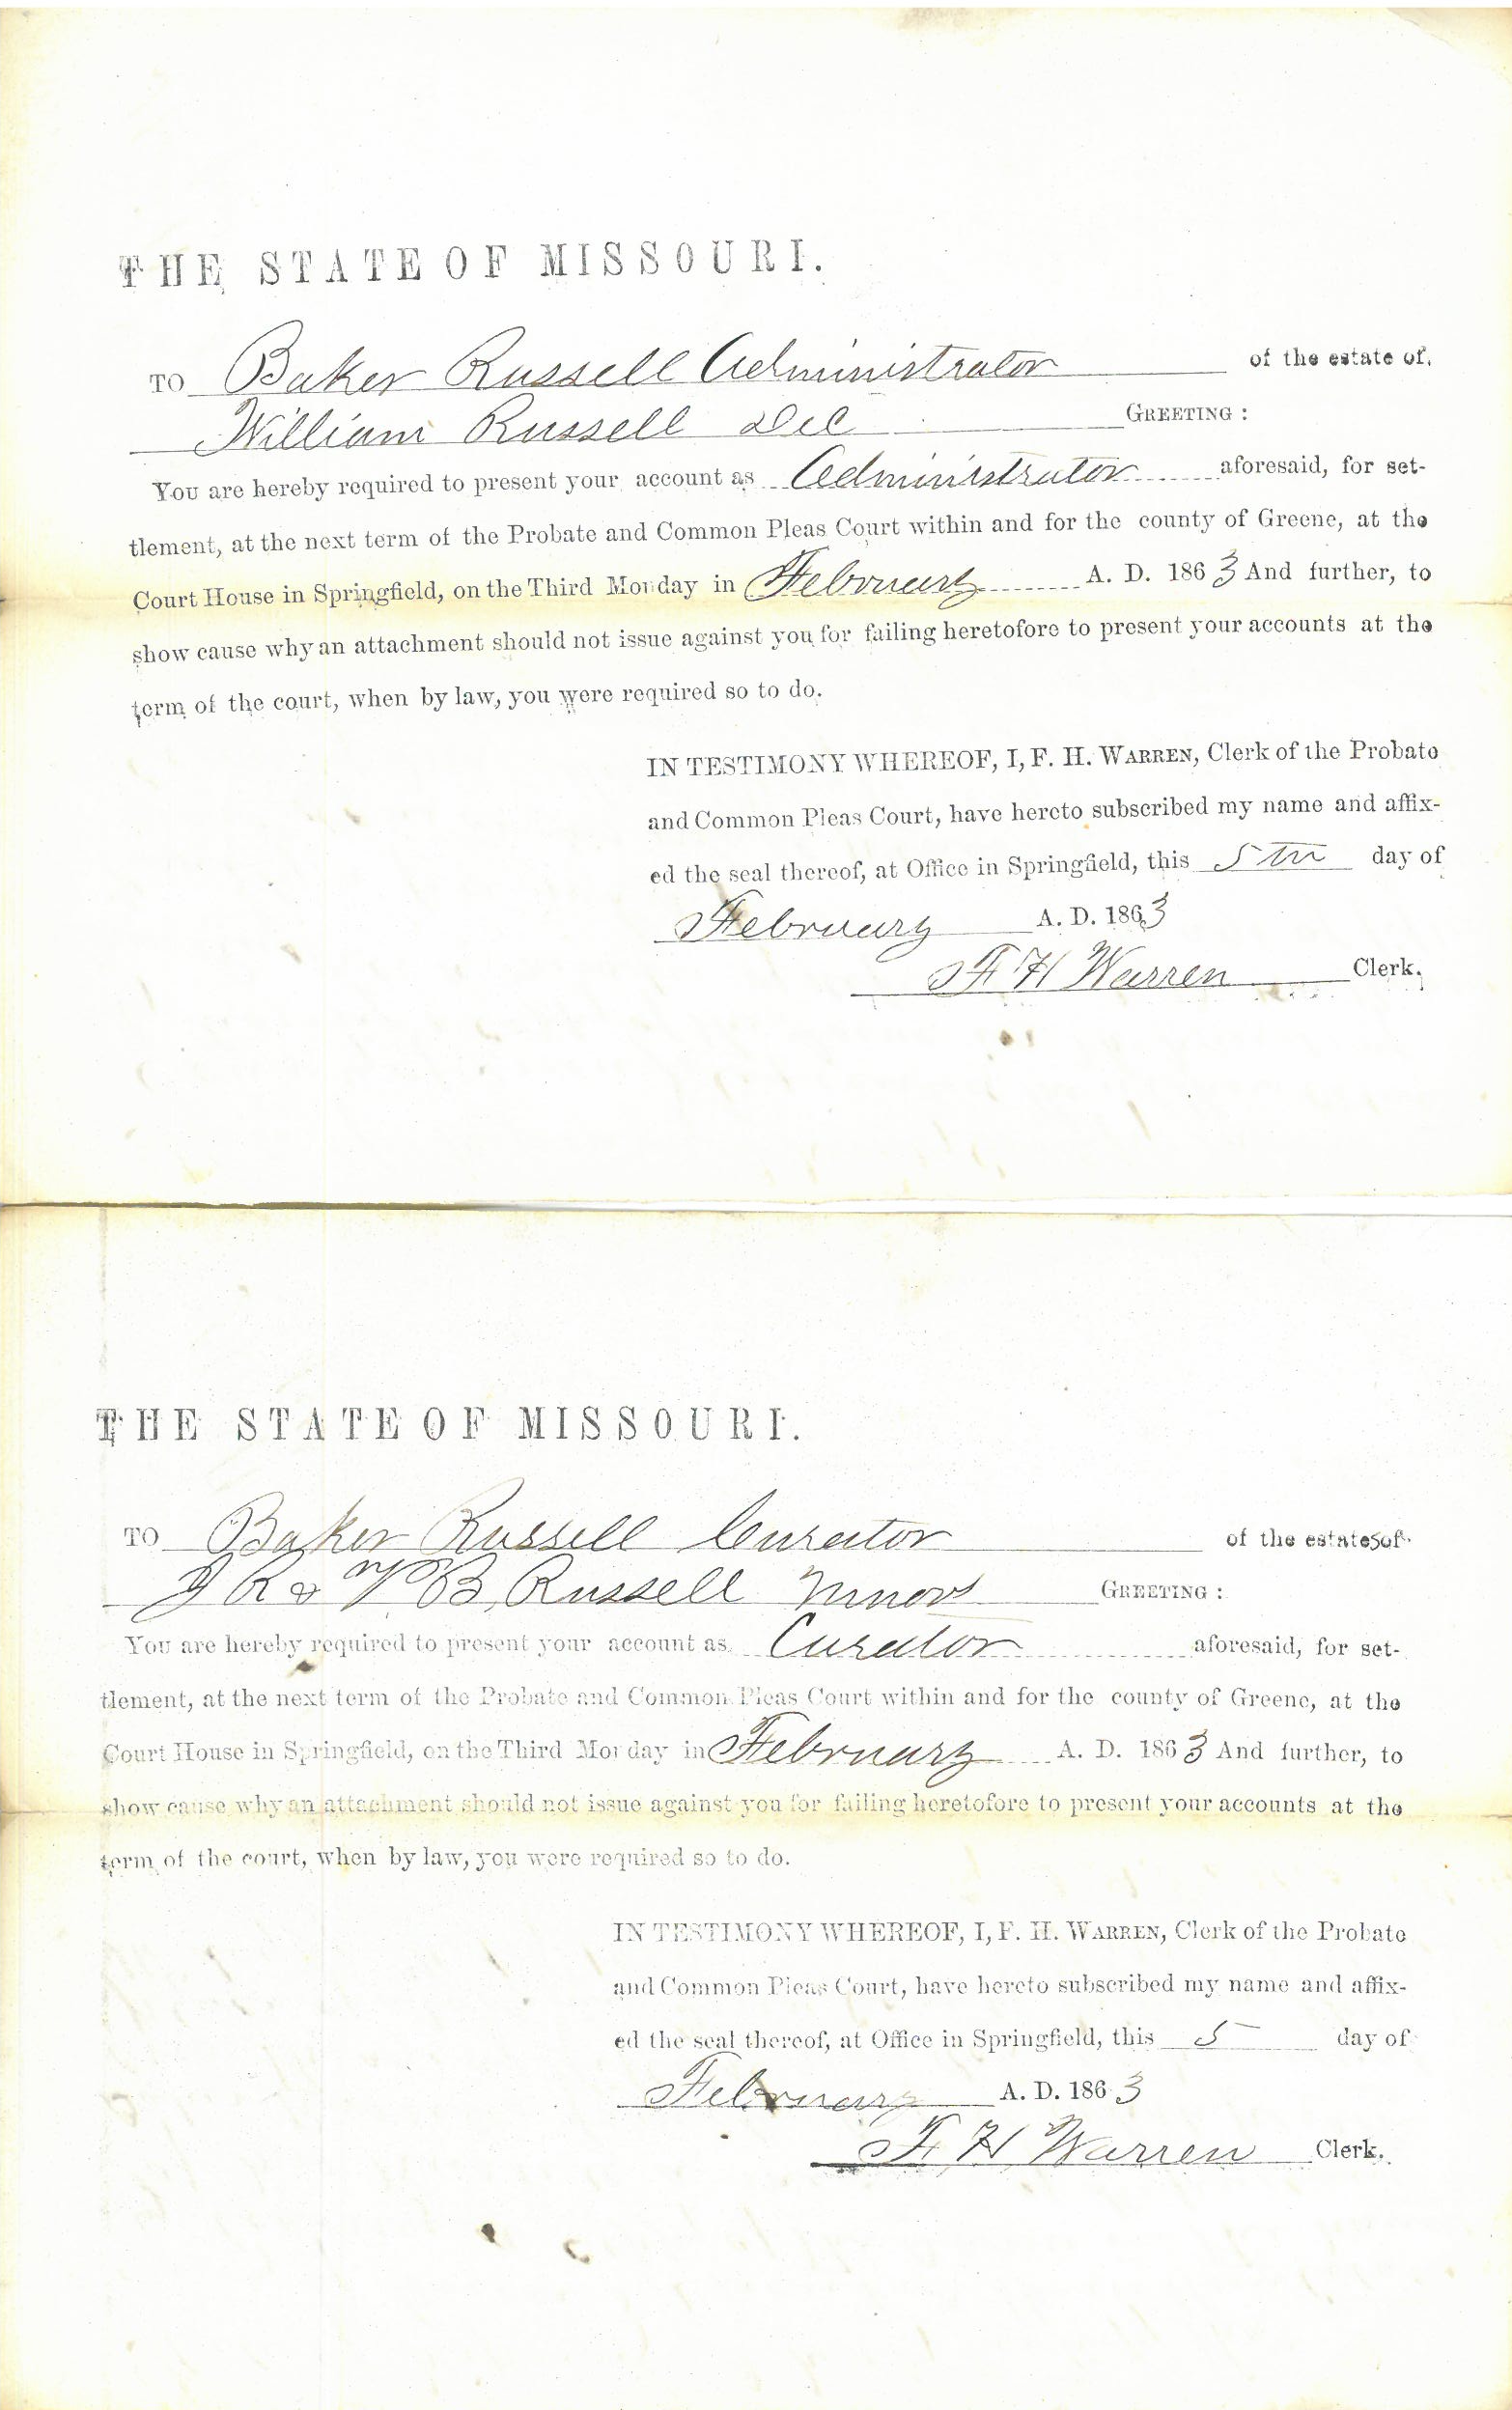 THE STATE OF MISSOURI.
TO Baker Russell Administrator of the estate of
William Russell Dec GREETING :
You are hereby required to present your account as Administrator aforesaid, for set-
tlement, at the next term of the Probate and Common Pleas Court within and for the county of Greene, at the
Court House in Springfield, on the Third Monday in February A. D. 1863 And further, to
show cause why an attachment should not issue against you for failing heretofore to present your accounts at the
term of the court, when by law, you were required so to do.
IN TESTIMONY WHEREOF, I, F. H. WARREN, Clerk of the Probate
and Common Pleas Court, have hereto subscribed my name and affix-
ed the seal thereof, at Office in Springfield, this 5th day of
February A. D. 1863
F H Warren Clerk.
THE STATE OF MISSOURI.
TO Baker Russell Curator of the estates of
J R & T B Russell Minors GREETING :
You are hereby required to present your account as Curator aforesaid, for set-
tlement, at the next term of the Probate and Common Pleas Court within and for the county of Greene, at the
Court House in Springfield, on the Third Monday in February A. D. 1863 And further, to
show cause why an attachment should not issue against you for failing heretofore to present your accounts at the
term of the court, when by law, you were required so to do.
IN TESTIMONY WHEREOF, I, F. H. WARREN, Clerk of the Probate
and Common Pleas Court, have hereto subscribed my name and affix-
ed the seal thereof, at Office in Springfield, this 5 day of
February A. D. 1863
F H Warren Clerk.